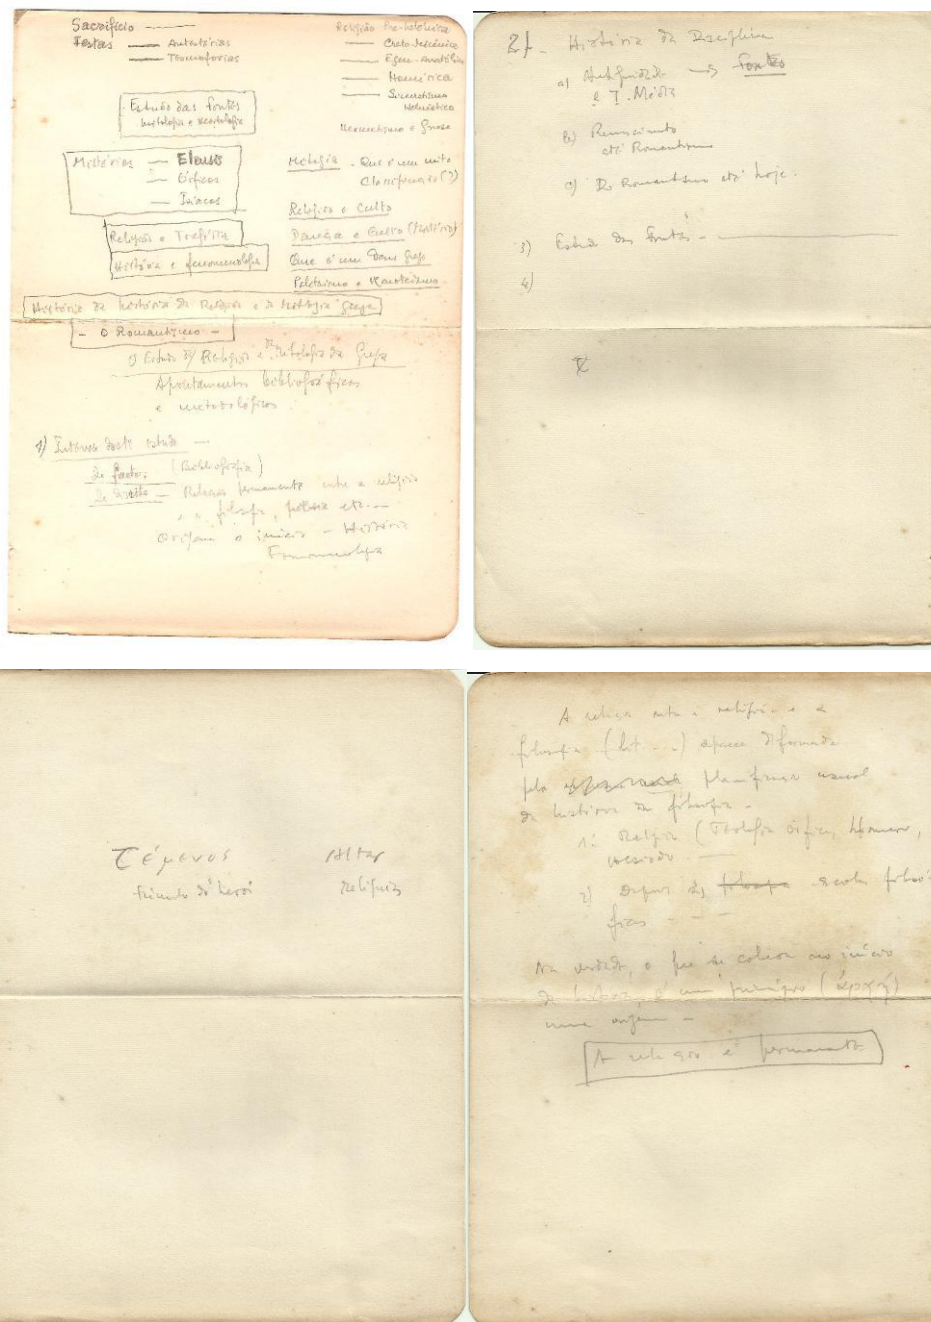 Sacrifício
Festas — Antestérias
— Tesmoforias
Religião Pre-helénica
— Creto-micénica
— Egeu-Anatólia
— Homérica
— Sincretismo
Helenístico
Estudo das fontes
mitologia e
Mistérios — Eleusis
— Órficos
—
Religião e Tragédia
História e fenomenologia
Mitologia - Que é um mito
Classificação (?)
Religião e Culto
e Culto (Mistério)
Que é um Deus grego
Politeísmo e
História da história da Religião e da Mitologia grega
- O Romantismo -
O Estudo da Religião e da Mitologia da Grécia
Apontamentos bibliográficos
e metodológicos
1) deste estudo —
De facto. (Bibliografia)
De direito — Relação permanente entre a religião
" " filosofia, poesia etc. —
Origem e início — História
Fenomenologia
2). História da Disciplina
a) Antiguidade → Fontes
e I. Média
b) Renascimento
até Romantismo
c) Do Romantismo até hoje.
3) Estudo das fontes -
4)
Τέμενος Altar
túmulo do herói Relíquias
A relação entre a religião e a
filosofia (lit. ...) aparece deformada
pela usual
da história da filosofia -
1º Religião (Teologia órfica, Homero,
Hesíodo. —
2) Depois as escolas filosó-
ficas - - -
Na verdade, o que se coloca no início
da história, é um princípio (ἀρχή)
uma origem -
A relação é permanente